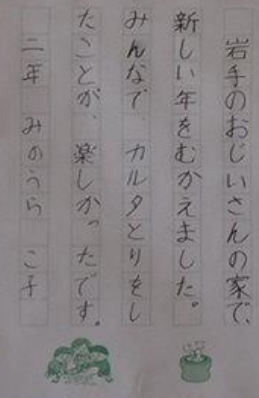 岩手のおじいさんの家で、
新しい年をむかえました。
みんなで、カルタとりをし
たことが、楽しかったです。
二年 みのうら こ子